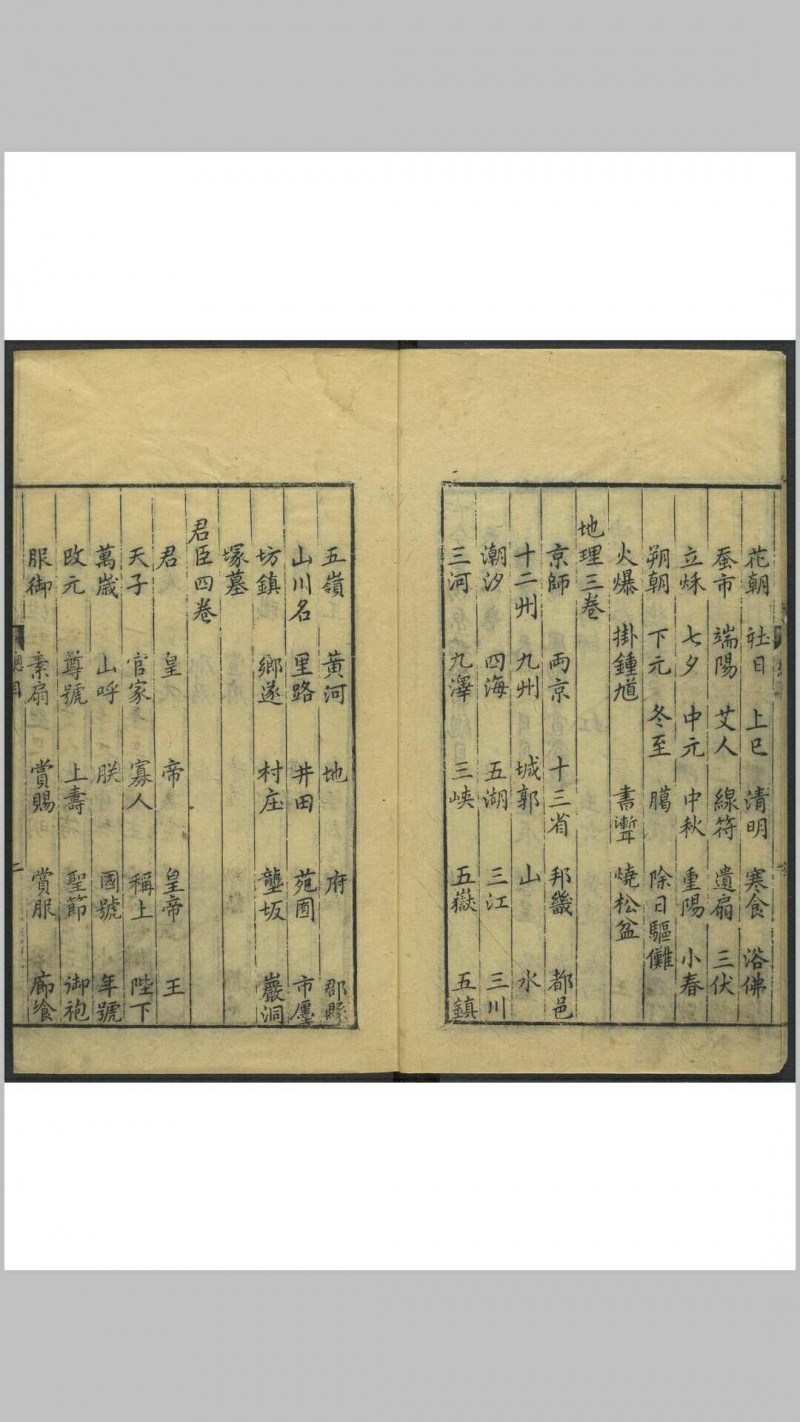 花朝 社日 上巳 清明 寒食 浴佛
蚕市 端陽 艾人 線符 遺扇 三伏
立秌 七夕 中元 中秋 重陽 小春
朔朝 下元 冬至 臈 除日驅儺
火爆 掛鍾馗 書聻 燒松盆
地理三卷
京師 兩京 十三省 邦畿 都邑
十二州 九州 城郭 山 水
潮汐 四海 五湖 三江 三川
三河 九澤 三峽 五嶽 五鎮
五嶺 黃河 地 府 郡縣
山川名 里路 井田 苑囿 市廛
坊鎮 鄉遂 村庄 壟坂 巖洞
塚墓
君臣四卷
君 皇 帝 皇帝 王
天子 官家 寡人 稱上 陛下
萬歲 山呼 朕 國號 年號
改元 尊號 上壽 聖節 御袍
服御 素扇 賞賜 賞服 廊飡